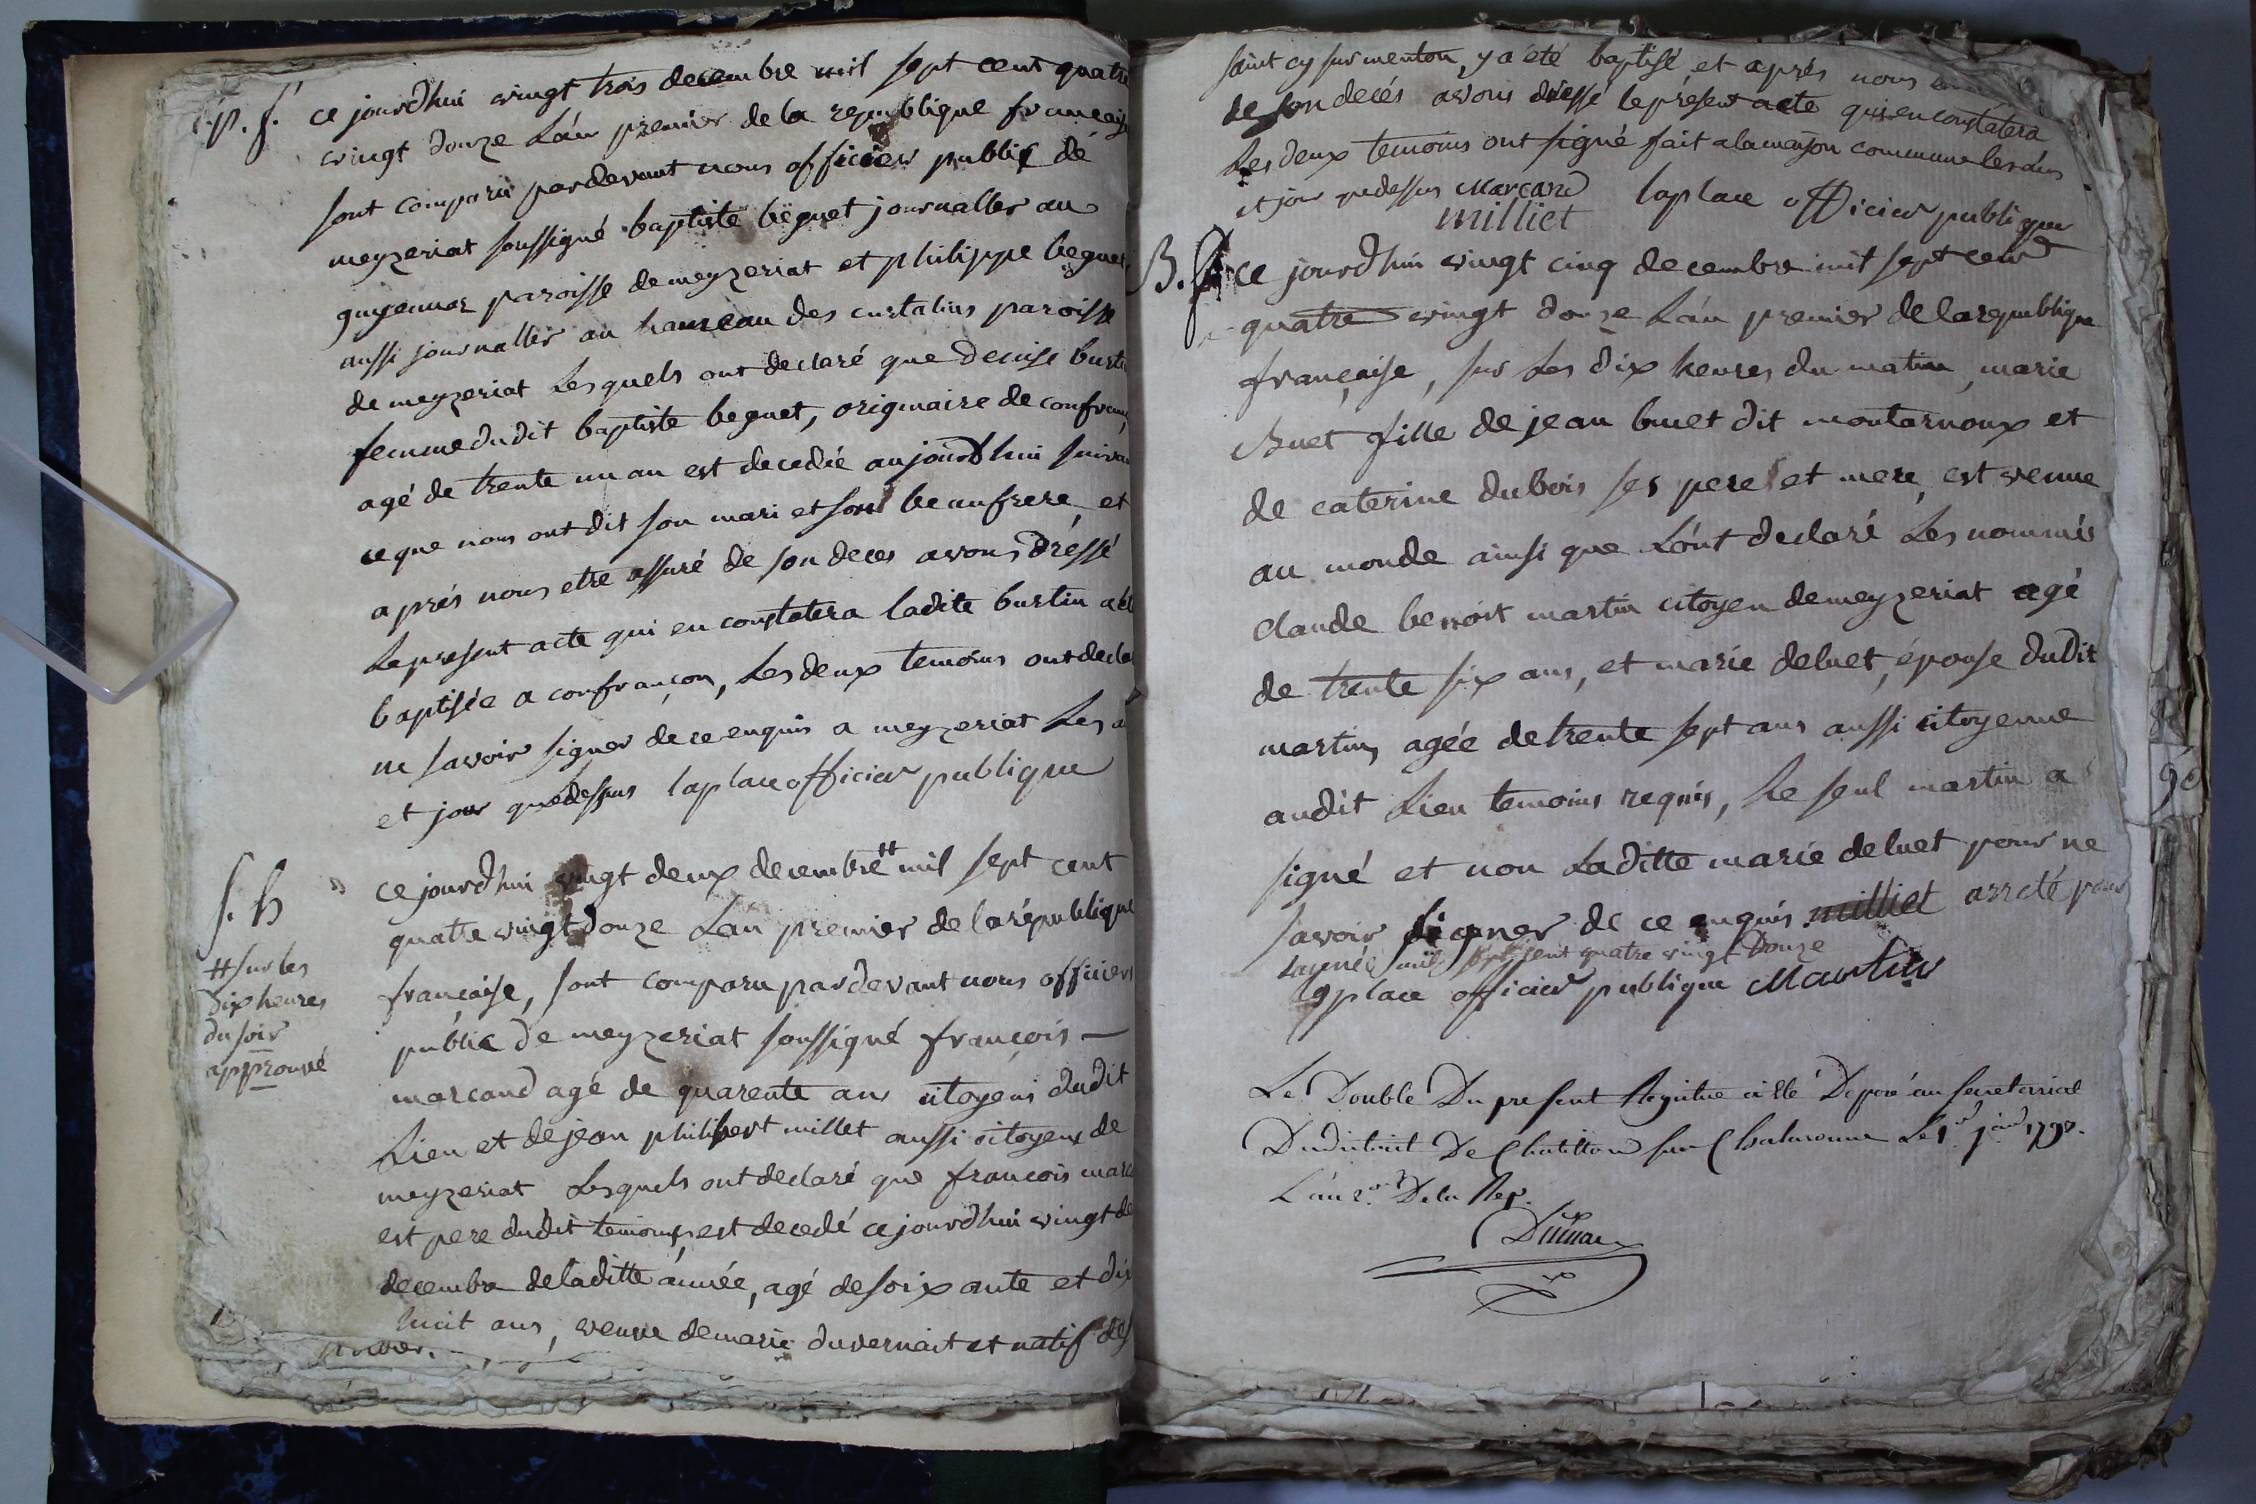 p. f.
ce jourdhui vingt trois decembre mil sept cent quatre
vingt douze L'án premier de la republique française
sont comparu pardevant nous officier public dé
meyzeriat soussigné baptiste beguet journallier au
paroisse de meyzeriat et philippe beguet
aussi journallier au hameau des custalins paroisse
de meyzeriat Lesquels ont declaré que denise burtin
femme dudit baptiste beguet, originaire de confrançon,
agé de trente un an est decedée aujourdhui suivant
ce que nous ont dit son mari et son beaufrere, et
aprés nous etre assuré de son deces avons dréssé
Lepresent acte qui en constatera ladite burtin a été
baptisée a confrançon, Les deux temoins ont declaré
ne savoir signer de ce enquis a meyzeriat Les an
et jour que dessus laplace officier publique
s. h
ce jourdhui vingt deux decembre # mil sept cent
quatre vingt douze Lan premier de la république
française, sont comparu pardevant nous officiers
public de meyzeriat soussigné françois —
marcand agé de quarente ans citoyens dudit
Lieu et de jean philibert millet aussi citoyens de
meyzeriat Lesquels ont declaré que françois marcand
est pere dudit temoins, est decedé ce jourdhui vingt deux
decembre de laditte année, agé de soixante et dix
huit ans, veuve de marie duvernait et natif de
# sur les
dix heures
du soir
approuvé
saint cy sur menton, y a été baptisé, et aprés nous
de son decés avons dressé le present acte qui en constatera
Les deux temoins ont signé fait a la maison commune les ans
et jour que dessus Marcand laplace officier publique
milliet
B. f
ce jourdhui vingt cinq decembre mil sept cent
quatre vingt douze L'án premier de la republique
française, sur Les dix heures du matin, marie
Buet fille de jean buet dit montarnoux et
de caterine dubois ses pere et mere, est venue
au monde ainsi que L'ont declaré Les nommés
claude benoit martin citoyen de meyzeriat agé
de trente six ans, et marie deluet, épouse dudit
martin, agée de trente sept ans aussi citoyenne
audit Lieu temoins requis, Le seul martin a
signé et non Laditte marie deluet pour ne
savoir signer de ce enquis milliet arreté pour
Lannée mil sept cent quatre vingt Douze
laplace officier publique Martin
Le Double Du present Registre a été Déposé au secretariat
Du district De Chatillon sur Chalaronne Le 1er janr 1793.
L'an 2. De la Rep.